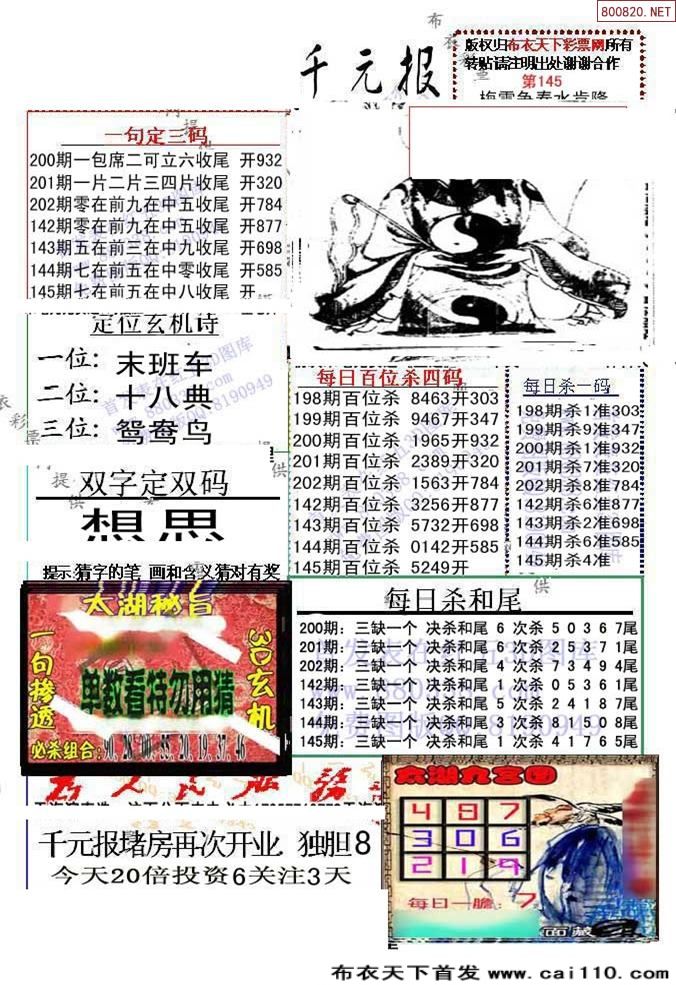 800820.NET
千元报
版权归布衣天下彩票网所有
转贴请注明出处谢谢合作
第145
梅雪争春水肯降
一句定三码
200期一包席二可立六收尾 开932
201期一片二片三四片收尾 开320
202期零在前九在中五收尾 开784
142期零在前九在中五收尾 开877
143期五在前三在中九收尾 开698
144期七在前五在中零收尾 开585
145期七在前五在中八收尾 开
定位玄机诗
一位: 末班车
二位: 十八典
三位: 鸳鸯鸟
每日百位杀四码
198期百位杀 8463开303
199期百位杀 9467开347
200期百位杀 1965开932
201期百位杀 2389开320
202期百位杀 1563开784
142期百位杀 3256开877
143期百位杀 5732开698
144期百位杀 0142开585
145期百位杀 5249开
每日杀一码
198期杀1准303
199期杀9准347
200期杀1准932
201期杀7准320
202期杀8准784
142期杀6准877
143期杀2准698
144期杀6准585
145期杀4准
双字定双码
想思
提示:猜字的笔 画和含义猜对有奖
太湖秘旨
一句掺透
单数看特勿用猜
3D玄机
必杀组合:90.28.00.33.20.19.37.46
每日杀和尾
200期: 三缺一个 决杀和尾 6 次杀 5 0 3 6 7尾
201期: 三缺一个 决杀和尾 6 次杀 2 5 3 7 1尾
202期: 三缺一个 决杀和尾 4 次杀 7 3 4 9 4尾
142期: 三缺一个 决杀和尾 1 次杀 0 5 3 6 1尾
143期: 三缺一个 决杀和尾 5 次杀 2 4 1 8 7尾
144期: 三缺一个 决杀和尾 3 次杀 8 1 3 0 8尾
145期: 三缺一个 决杀和尾 1 次杀 4 1 7 6 5尾
千元报堵房再次开业 独胆8
今天20倍投资6关注3天
太湖九宫图
4 8 7
3 0 6
2 1 9
每日一胆: 7
布衣天下首发 www.cai110.com